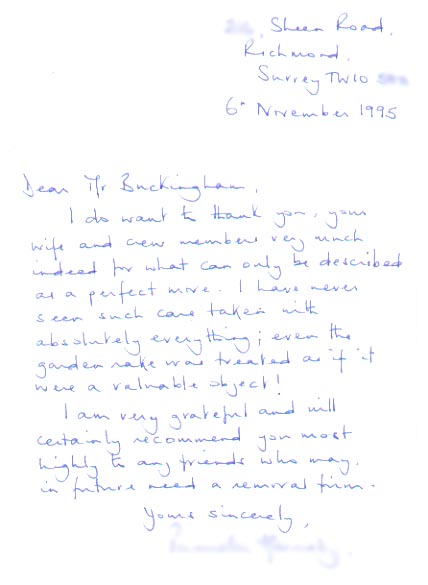 Sheen Road,
Richmond,
Surrey TW10
6th November 1995
Dear Mr Buckingham,
I do want to thank you, your
wife and crew members very much
indeed for what can only be described
as a perfect move. I have never
seen such care taken with
absolutely everything; even the
garden rake was treated as if it
were a valuable object!
I am very grateful and will
certainly recommend you most
highly to any friends who may,
in future need a removal firm.
Yours sincerely,